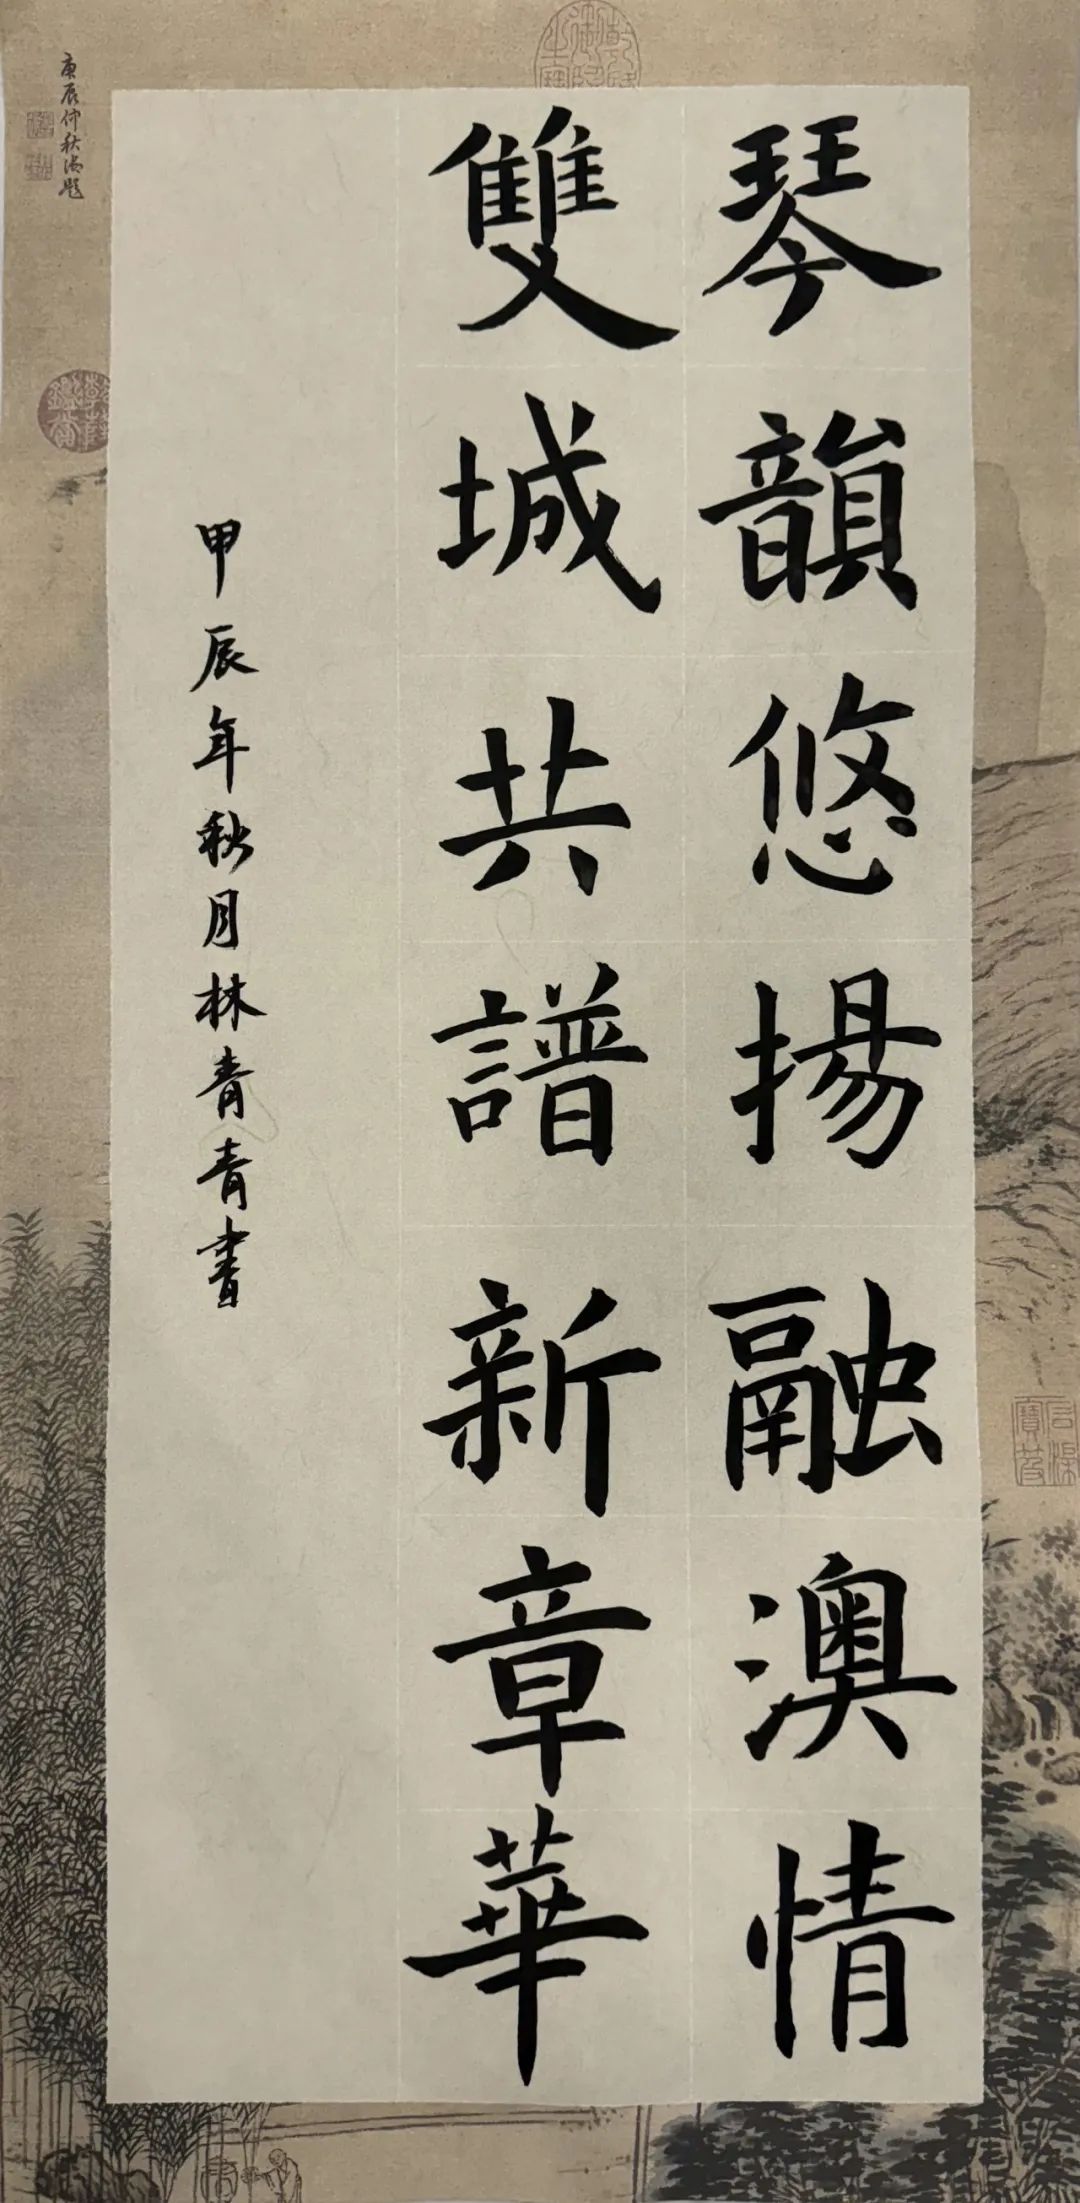 琴韻悠揚融澳情
雙城共譜新章華
甲辰年秋月林青青書
庚辰仲秋海題